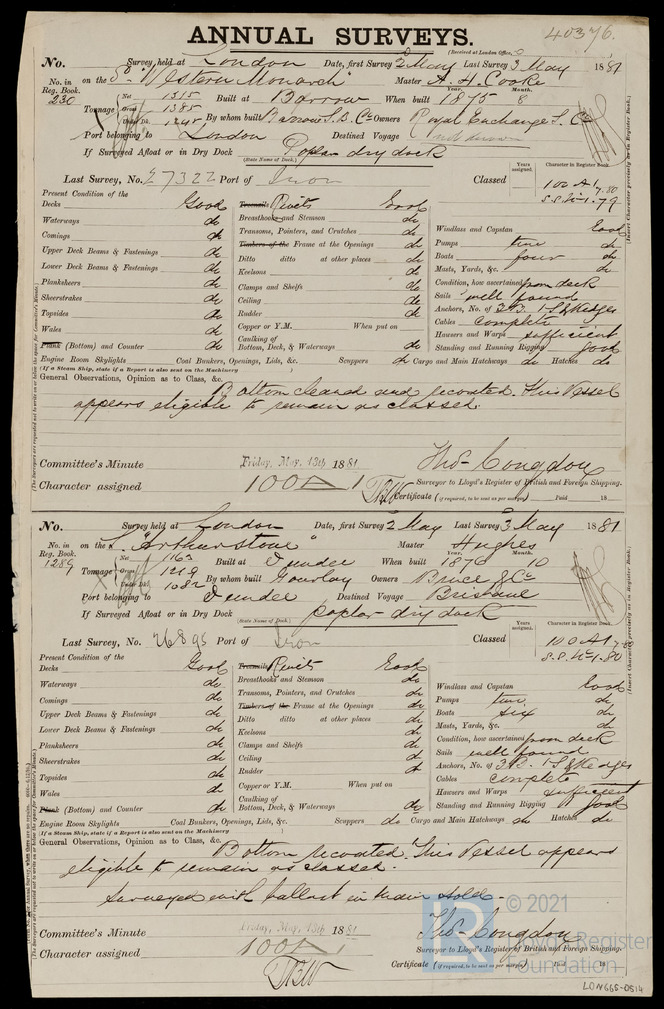 ANNUAL SURVEYS.
40376.
(Received at London Office,
No. Survey held at London Date, first Survey 2 May Last Survey 3 May 1881
No. in on the "Western Monarch" Master A. H. Cooke
Reg. Book. Net 1315 Year. Month.
230 Tonnage Gross 1385 Built at Barrow When built 1875 8
Under Dk. By whom built Barrow S. B. Co Owners Royal Exchange S. Co
Port belonging to London Destined Voyage not known
If Surveyed Afloat or in Dry Dock Poplar dry dock
(State Name of Dock.)
Last Survey, No. 27322 Port of Iron Classed Years assigned. Character in Register Book
100 A 7.80
S.S. No 1-79
Present Condition of the
Decks Good Treenails Rivets Good
Waterways do Breasthooks and Stemson do Windlass and Capstan Good
Comings do Transoms, Pointers, and Crutches do Pumps two do
Upper Deck Beams & Fastenings do Timbers of the Frame at the Openings do Boats four do
Lower Deck Beams & Fastenings do Ditto ditto at other places do Masts, Yards, &c. do
Planksheers do Keelsons do Condition, how ascertained from deck
Sheerstrakes do Clamps and Shelfs do Sails well found
Topsides do Ceiling do Anchors, No. of 3 B. 1 S & Kedges
Wales do Rudder do Cables complete
Plank (Bottom) and Counter do Copper or Y.M. When put on Hawsers and Warps sufficient
Caulking of Bottom, Deck, & Waterways do Standing and Running Rigging good
Engine Room Skylights Coal Bunkers, Openings, Lids, &c. Scuppers do Cargo and Main Hatchways do Hatches do
(If a Steam Ship, state if a Report is also sent on the Machinery )
General Observations, Opinion as to Class, &c.
Bottom cleaned and recoated. This Vessel
appears eligible to remain as classed.
Committee's Minute Friday, May. 13th 1881 Thos Congdon
Surveyor to Lloyd's Register of British and Foreign Shipping.
Character assigned 100A1
Certificate (if required, to be sent as per margin) Paid 18
No. Survey held at London Date, first Survey 2 May Last Survey 3 May 1881
No. in on the "Arthurstone" Master Hughes
Reg. Book. Net 1163 Year. Month.
1289 Tonnage Gross 1219 Built at Dundee When built 1876 10
Under Dk. 1082 By whom built Gourlay Owners Bruce & Co
Port belonging to Dundee Destined Voyage Brisbane
If Surveyed Afloat or in Dry Dock poplar dry dock
(State Name of Dock.)
Last Survey, No. 26895 Port of Iron Classed Years assigned. Character in Register Book
100 A1
S.S. No 1-80
Present Condition of the
Decks Good Treenails Rivets Good
Waterways do Breasthooks and Stemson do Windlass and Capstan Good
Comings do Transoms, Pointers, and Crutches do Pumps two do
Upper Deck Beams & Fastenings do Timbers of the Frame at the Openings do Boats six do
Lower Deck Beams & Fastenings do Ditto ditto at other places do Masts, Yards, &c. do
Planksheers do Keelsons do Condition, how ascertained from deck
Sheerstrakes do Clamps and Shelfs do Sails well found
Topsides do Ceiling do Anchors, No. of 3 B. 1 S & Kedges
Wales do Rudder do Cables complete
Plank (Bottom) and Counter do Copper or Y.M. When put on Hawsers and Warps sufficient
Caulking of Bottom, Deck, & Waterways do Standing and Running Rigging good
Engine Room Skylights Coal Bunkers, Openings, Lids, &c. Scuppers do Cargo and Main Hatchways do Hatches do
(If a Steam Ship, state if a Report is also sent on the Machinery )
General Observations, Opinion as to Class, &c.
Bottom recoated. This Vessel appears
eligible to remain as classed.
Surveyed with ballast in Main Hold.
Committee's Minute Friday, May. 13th 1881 Thos Congdon
Surveyor to Lloyd's Register of British and Foreign Shipping.
Character assigned 100A1
Certificate (if required, to be sent as per margin) Paid 18
© 2021
LR
Lloyd's Register
Foundation
LON665-0514